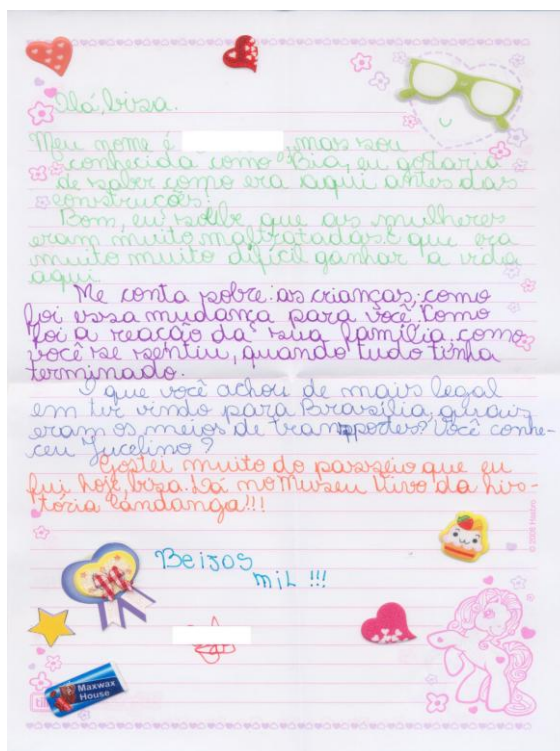 Olá, biza.
Meu nome é , mas sou
conhecida como "Bia, eu gostaria
de saber como era aqui antes das
construções!
Bom, eu soube que as mulheres
eram muito maltratadas. E que era
muito muito difícil ganhar a vida
aqui.
Me conta sobre: as crianças, como
foi essa mudança para você. Como
foi a reação da sua família, como
você se sentiu, quando tudo tinha
terminado.
O que você achou de mais legal
em ter vindo para Brasília, quais
eram os meios de transportes? Você conhe-
ceu Jucelino?
Gostei muito do passeio que eu
fui hoje, biza. Lá no Museu Vivo da his-
tória Candanga!!!
Beijos
mil !!!
Maxwax
House
© 2006 Hasbro